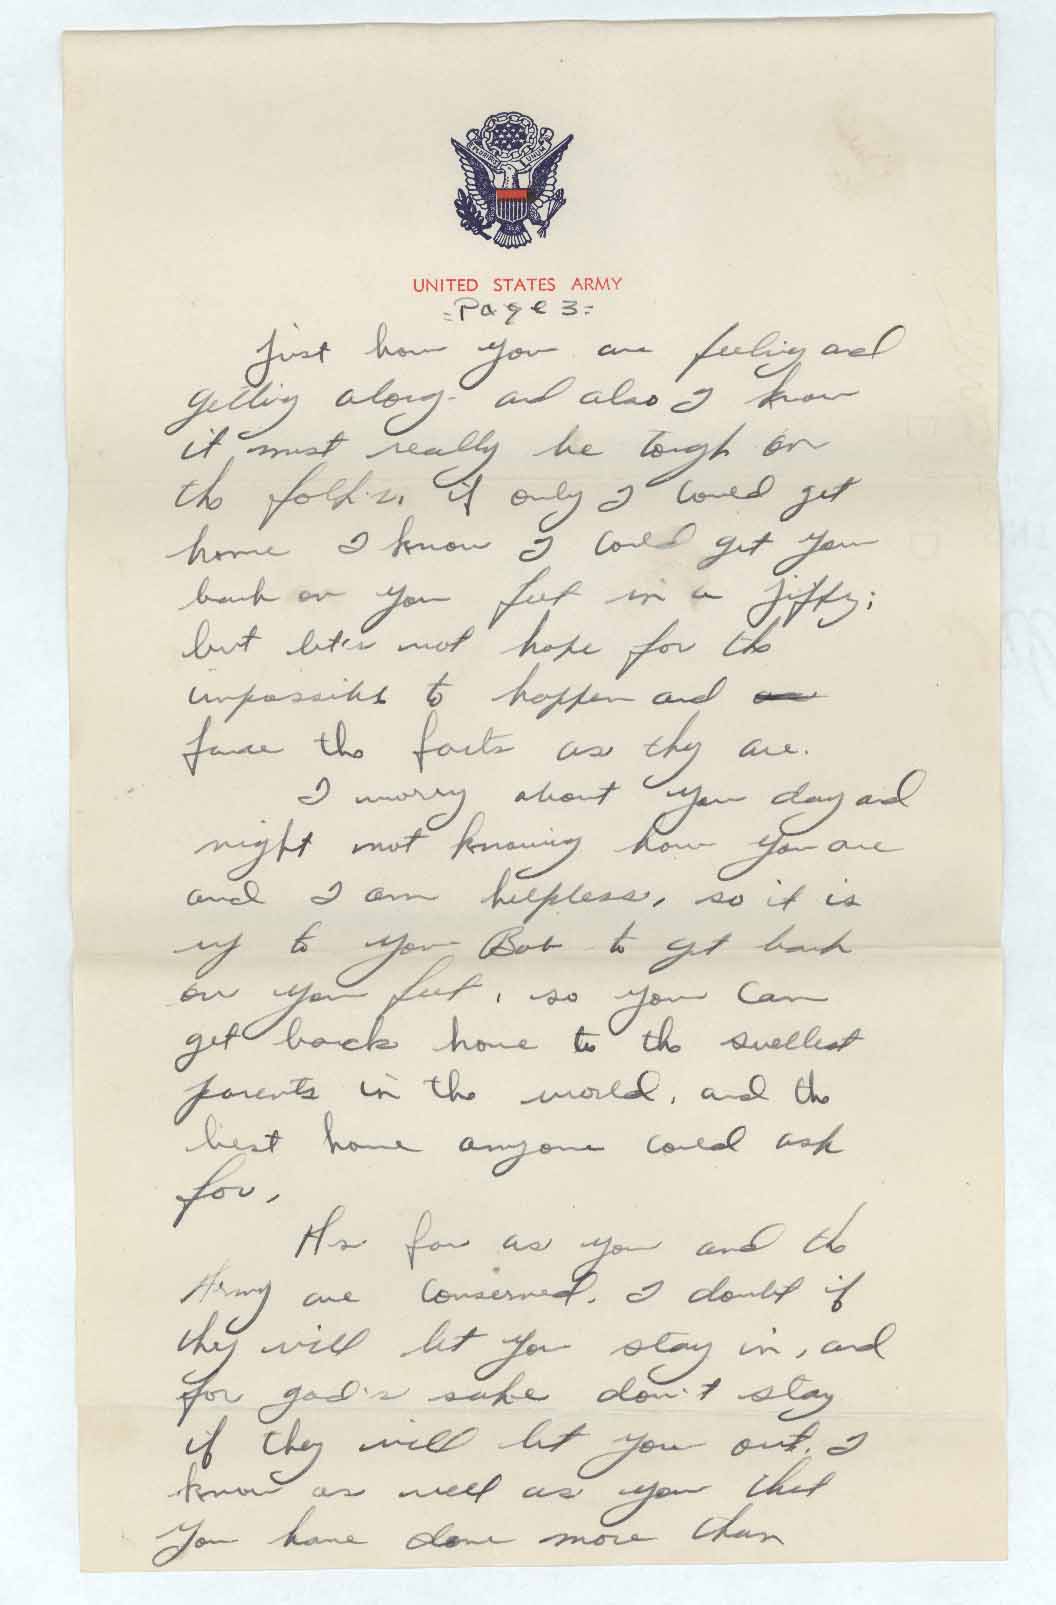 E PLURIBUS UNUM
UNITED STATES ARMY
=Page 3=
Just how you are feeling and
getting along. and also I know
it must really be tough on
the folk's, if only I could get
home I know I could get you
back on you feet in a jiffy;
but let's not hope for the
impossible to happen and
face the facts as they are.
I worry about you day and
night not knowing how you are
and I am helpless, so it is
up to you Bob to get back
on your feet, so you can
get back home to the swellest
parents in the world, and the
best home anyone could ask
for,
As far as you and the
Army are conserned, I doubt if
they will let you stay in, and
for god's sake don't stay
if they will let you out. I
know as well as you that
you have done more than